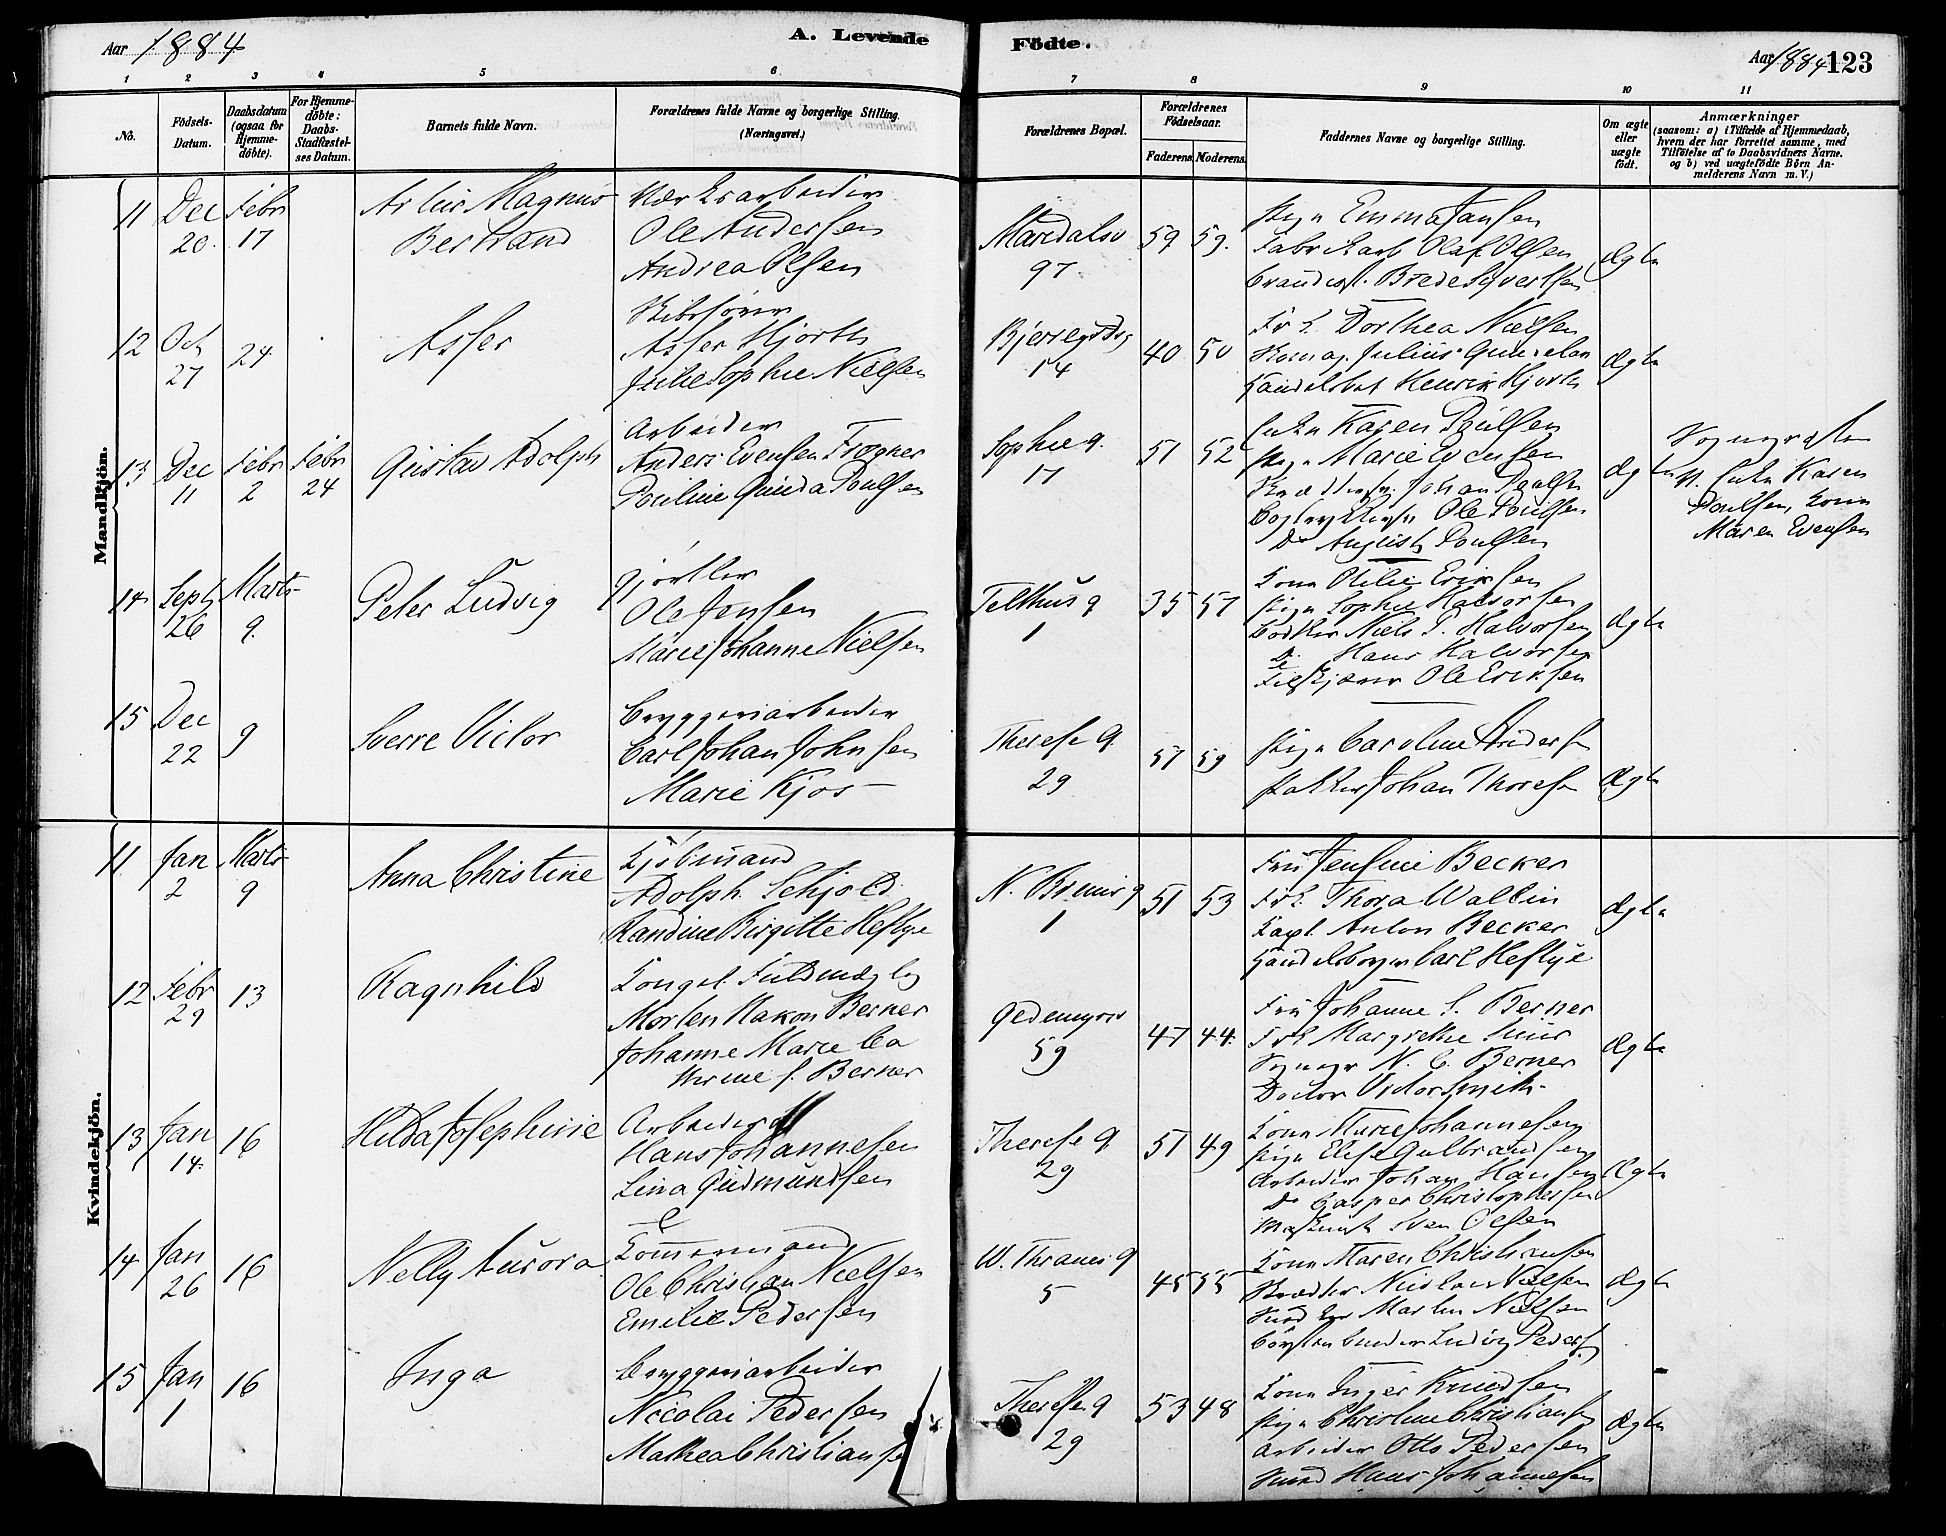 Aar 1884
A. Levende
Födte.
Aar 1884
123
1
2
3
4
5
6
7
8
9
10
11
No.
Födsels-
Datum.
Daabsdatum
(ogsaa for
Hjemme-
döbte).
For Hjemme-
döbte:
Daabs-
Stadfæstel-
ses Datum.
Barnets fulde Navn.
Forældrenes fulde Navne og borgerlige Stilling.
(Næringsvei.)
Forældrenes Bopæl.
Forældrenes
Födselsaar.
Faderens.
Moderens.
Faddernes Navne og borgerlige Stilling.
Om ægte
eller
uægte
födt.
Anmærkninger
(saasom: a) i Tilfælde af Hjemmedaab,
hvem der har forrettet samme, med
Tilföielse af to Daabsvidners Navne,
og b) ved uægtefödte Börn An-
melderens Navn m. V.)
Mandkjön.
11
Dec
20.
Febr
17
Artur Magnus
Bertrand
Værksarbeider
Ole Andersen
Andrea Olsen
Maridalsv
97
59
59.
Pige Emma Jansen
Fabrikarb Olaf Olsen
Brede Syvertsen
Ægte
12
Oct
27
24
Asser
Skibsfører
Asser Hjorth
Julie Sophie Nielsen
Bjerregdsg
14
40
50
Frk. Dorthea Nielsen
Julius Gundelan
Henrik Hjorth
Ægte
13
Dec
11
Febr
2
Febr
24
Gustav Adolph
Arbeider
Anders Evensen Frogner
Pauline Gunda Poulsen
Sophieg.
17
51
52
Enke Karen Poulsen
Pige Marie Evensen
Johan Poulsen
Ole Poulsen
Do August Poulsen
Ægte
Enke Karen
Poulsen, Kone
Maren Evensen
14
Sept
26
Marts
9.
Peter Ludvig
Gjørtler
Ole Jensen
Marie Johanne Nielsen
Telthusg
1
35
57
Kone Otilie Eriksen
Pige Sophie Halvorsen
Bødker Niels P. Halvorsen
Do Hans Halvorsen
Ole Eriksen
Ægte
15
Dec
22
9
Sverre Victor
Bryggeriarbeider
Carl Johan Johnsen
Marie Kjos
Theresesg.
29
57
59
Pige Caroline Anders
Pakker Johan Thorese
Ægte
Kvindekjön.
11
Jan
2
Marts
9
Anna Christine
Kjøbmand
Adolph Schjold
Randine Birgitte Heftye
N. Brennerig
1
51
53
Fru Jensine Becker
Frk. Thora Wallin
Kapt. Anton Becker
Handelsborger Carl Heftye
Ægte
12
Febr
29
13
Ragnhild
Kongel. Fuldmægtig
Morten Hakon Berner
Johanne Marie Ca
S. Berner
Gedemyrsv
59
47
44.
Fru Johanne S. Berner
Frk Margrethe
N. C. Berner
Doctor Victor Smith
Ægte
13
Jan
14.
16
Hilda Josephine
Arbeider
Hans Johannesen
Lina Gudmundsen
Therese g.
29
51
49
Kone Marie Johannesen
Pige Elise Gulbrandsen
Arbeider Johan Hansen
Do Casper Christophersen
Maskinist Sven Olsen
Ægte
14
Jan
26
16
Nelly Aurora
Tømmermand
Ole Christian Nielsen
Emilie Pedersen
W. Thranesg
5
45
55
Kone Maren Christiansen
Skrædder Nicolai Nielsen
Martin Nielsen
Børstenbinder Ludvig Peders
Ægte
15
Jan
1
16
Inga
Bryggeriarbeider
Nicolai Pedersen
Mathea Christianse
Therese g
29
53
48
Kone Inger Knudsen
Pige Christine Christiansen
Arbeider Otto Pedersen
Hans Johannesen
Ægte